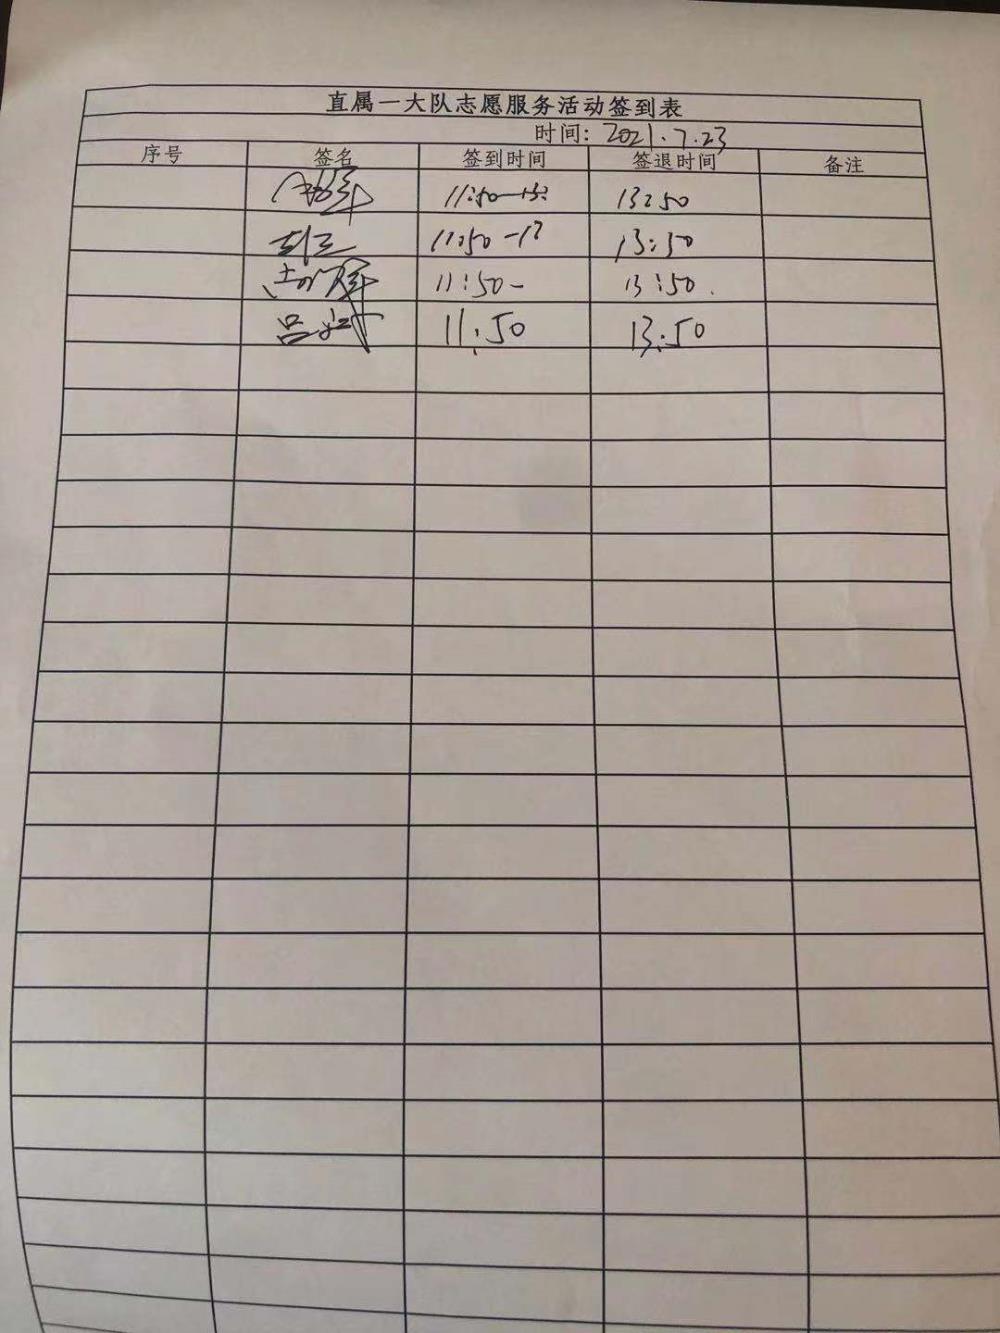 直属一大队志愿服务活动签到表
时间: 2021.7.23
序号 签名 签到时间 签退时间 备注
11:50-13: 13:50
11:50-13 13:50
11:50- 13:50.
吕 11:50 13:50